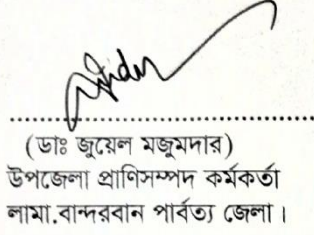 (ডাঃ জুয়েল মজুমদার)
উপজেলা প্রাণিসম্পদ কর্মকর্তা
লামা.বান্দরবান পার্বত্য জেলা।